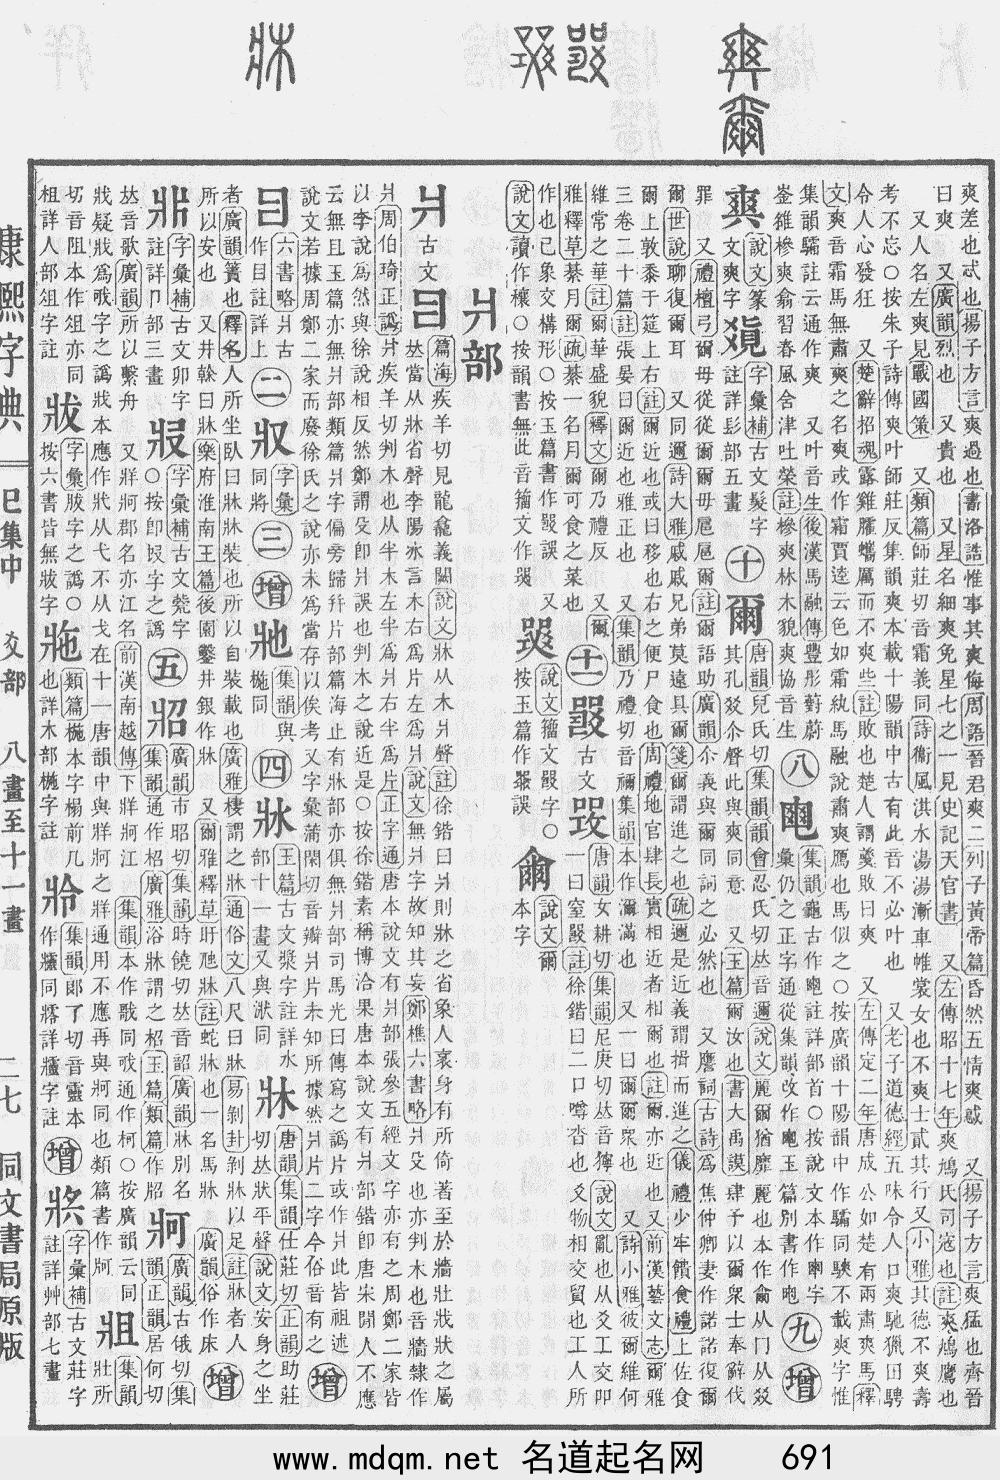 爽差也忒也揚子方言爽過也書洛誥惟事其爽侮周語晉君爽二列子黃帝篇昏然五情爽惑 又揚子方言爽猛也齊晉
曰爽 又廣韻烈也 又貴也 又星名細爽免星七之一見史記天官書 又左傳昭十七年爽鳩氏司寇也註爽鳩鷹也
又人名左爽見戰國策 又類篇師莊切音霜義同詩衞風淇水湯湯漸車帷裳女也不爽士貳其行又小雅其德不爽壽
考不忘○按朱子詩傳爽叶師莊反集韻爽本載十陽韻中古有此音不必叶也 又老子道德經五味令人口爽馳獵田騁
令人心發狂 又楚辭招魂露雞臛蠵厲而不爽些註敗也楚人謂羹敗曰爽 又左傳定二年唐成公如楚有兩肅爽馬釋
文爽音霜馬無肅爽之名爽或作霜賈逵云色如霜紈馬融說肅爽鴈也馬似之○按廣韻十陽韻中作驦同騻不載爽字惟
集韻驦註云通作爽 又叶音生後漢馬融傳豐彤薱蔚
椮爽翕習春風含津吐榮註椮爽林木貌爽協音生
八
集韻龜古作 註詳部首○按說文本作 字
彙仍之正字通從集韻改作 玉篇別書作
九 增
說文篆
文爽字
字彙補古文髮字
註詳髟部五畫
十
爾
唐韻兒氏切集韻韻會忍氏切𠀤音邇說文麗爾猶靡麗也本作爾从冂从㸚
其孔㸚尒聲此與爽同意 又玉篇爾汝也書大禹謨肆予以爾衆士奉辭伐
罪 又禮檀弓爾毋從從爾爾毋扈扈爾註爾語助廣韻尒義與爾同詞之必然也 又譍詞古詩爲焦仲卿妻作諾諾復爾
爾世說聊復爾耳 又同邇詩大雅戚戚兄弟莫遠具爾箋爾謂進之也疏邇是近義謂揖而進之儀禮少牢饋食禮上佐食
爾上敦黍于筵上右註爾近也或曰移也右之便尸食也周禮地官肆長實相近者相爾也註爾亦近也又前漢藝文志爾雅
三卷二十篇註張晏曰爾近也雅正也 又集韻乃禮切音禰集韻本作濔滿也 又一曰爾爾衆也 又詩小雅彼爾維何
維常之華註爾華盛貌釋文爾乃禮反 又爾
雅釋草綦月爾疏綦一名月爾可食之菜也
十一
古文
唐韻女耕切集韻尼庚切𠀤音獰說文亂也从爻工交吅
一曰窒㗊註徐鍇曰二口噂沓也爻物相交質也工人所
作也已象交構形○按玉篇書作 誤 又
說文讀作穰○按韻書無此音籀文作
說文籀文 字○
按玉篇作 誤
說文爾
本字
爿部
爿
古文
篇海疾羊切見龍龕義闕說文牀从木爿聲註徐鍇曰爿則牀之省象人衺身有所倚著至於牆壯戕狀之屬
𠀤當从牀省聲李陽冰言木右爲片左爲爿說文無爿字故知其妄鄭樵六書略爿殳也亦判木也音牆隸作
爿周伯琦正譌爿疾羊切判木也从半木左半爲爿右半爲片正字通唐本說文有爿部張參五經文字亦有之周鄭二家皆
以李說爲然與徐說相反然鄭謂殳卽爿誤也判木之說近是○按徐鍇素稱博洽果唐本說文有爿部鍇卽唐宋閒人不應
云無且玉篇亦無爿部類篇爿字偏旁歸片部篇海止有牀部亦俱無爿部司馬光曰傳寫之譌片或作爿此皆祖述
說文若據周鄭二家而廢徐氏之說亦未爲當存以俟考 又字彙蒲閑切音瓣爿片未知所據然爿片二字今俗音有之
增
六書略爿古
作 註詳上
二
字彙
同將
三 增
集韻與
椸同
四
玉篇古文漿字註詳水
部十一畫又與㳈同
牀
唐韻集韻仕莊切正韻助莊
切𠀤狀平聲說文安身之坐
者廣韻簀也釋名人所坐臥曰牀牀裝也所以自裝載也廣雅棲謂之牀通俗文八尺曰牀易剝卦剝牀以足註牀者人
所以安也 又井榦曰牀樂府淮南王篇後園鑿井銀作牀 又爾雅釋草盱虺牀註蛇牀也一名馬牀 廣韻俗作床
增
字彙補古文卯字
註詳卩部三畫
字彙補古文㲋字
○按卽 字之譌
五
牊
廣韻市昭切集韻時饒切𠀤音韶廣韻牀別名
集韻通作柖廣雅浴牀謂之柖玉篇類篇作牊
牁
廣韻古俄切集
韻正韻居何切
𠀤音歌廣韻所以繫舟 又牂牁郡名亦江名前漢南越傳下牂牁江 集韻本作歌同戨通作柯○按廣韻云同
戕疑戕爲戨字之譌戕本應作戕从弋不从戈在十一唐韻中與牂牁之牂通用不應再與牁同也類篇書作牁
牀
集韻壯所
切音阻本作俎亦同
柤詳人部俎字註
字彙 字之譌○
按六書皆無 字
類篇椸本字榻前几
也詳木部椸字註
集韻郎丁切音靈本
作 同 詳 字註
增
字彙補古文莊字
註詳艸部七畫
康熙字典 巳集中 爻部 八畫至十一畫 二七 同文書局原版
www.mdqm.net 名道起名网 691